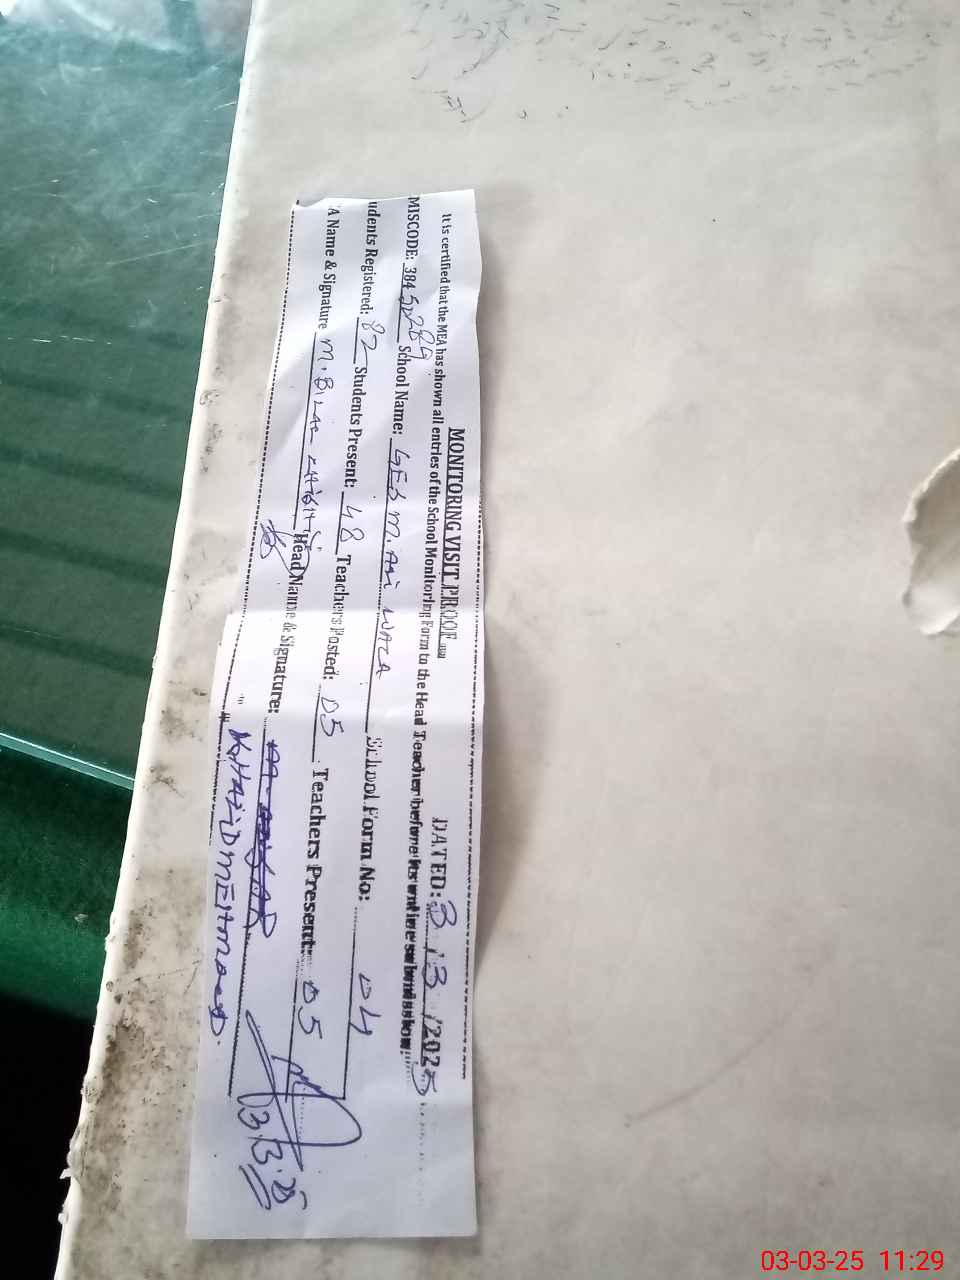 MONITORING VISIT PROOF
DATED: 3/3/2025
It is certified that the MEA has shown all entries of the School Monitoring Form to the Head Teacher before its online submission.
MISCODE: 38452289 School Name: GES M. Ali WALA School Form No: 04
udents Registered: 82 Students Present: 48 Teachers Posted: 05 Teachers Present: 05
A Name & Signature M. BILAL CHISHTI Head Name & Signature:
KHALID MEHMOOD
3.3.25
03-03-25 11:29